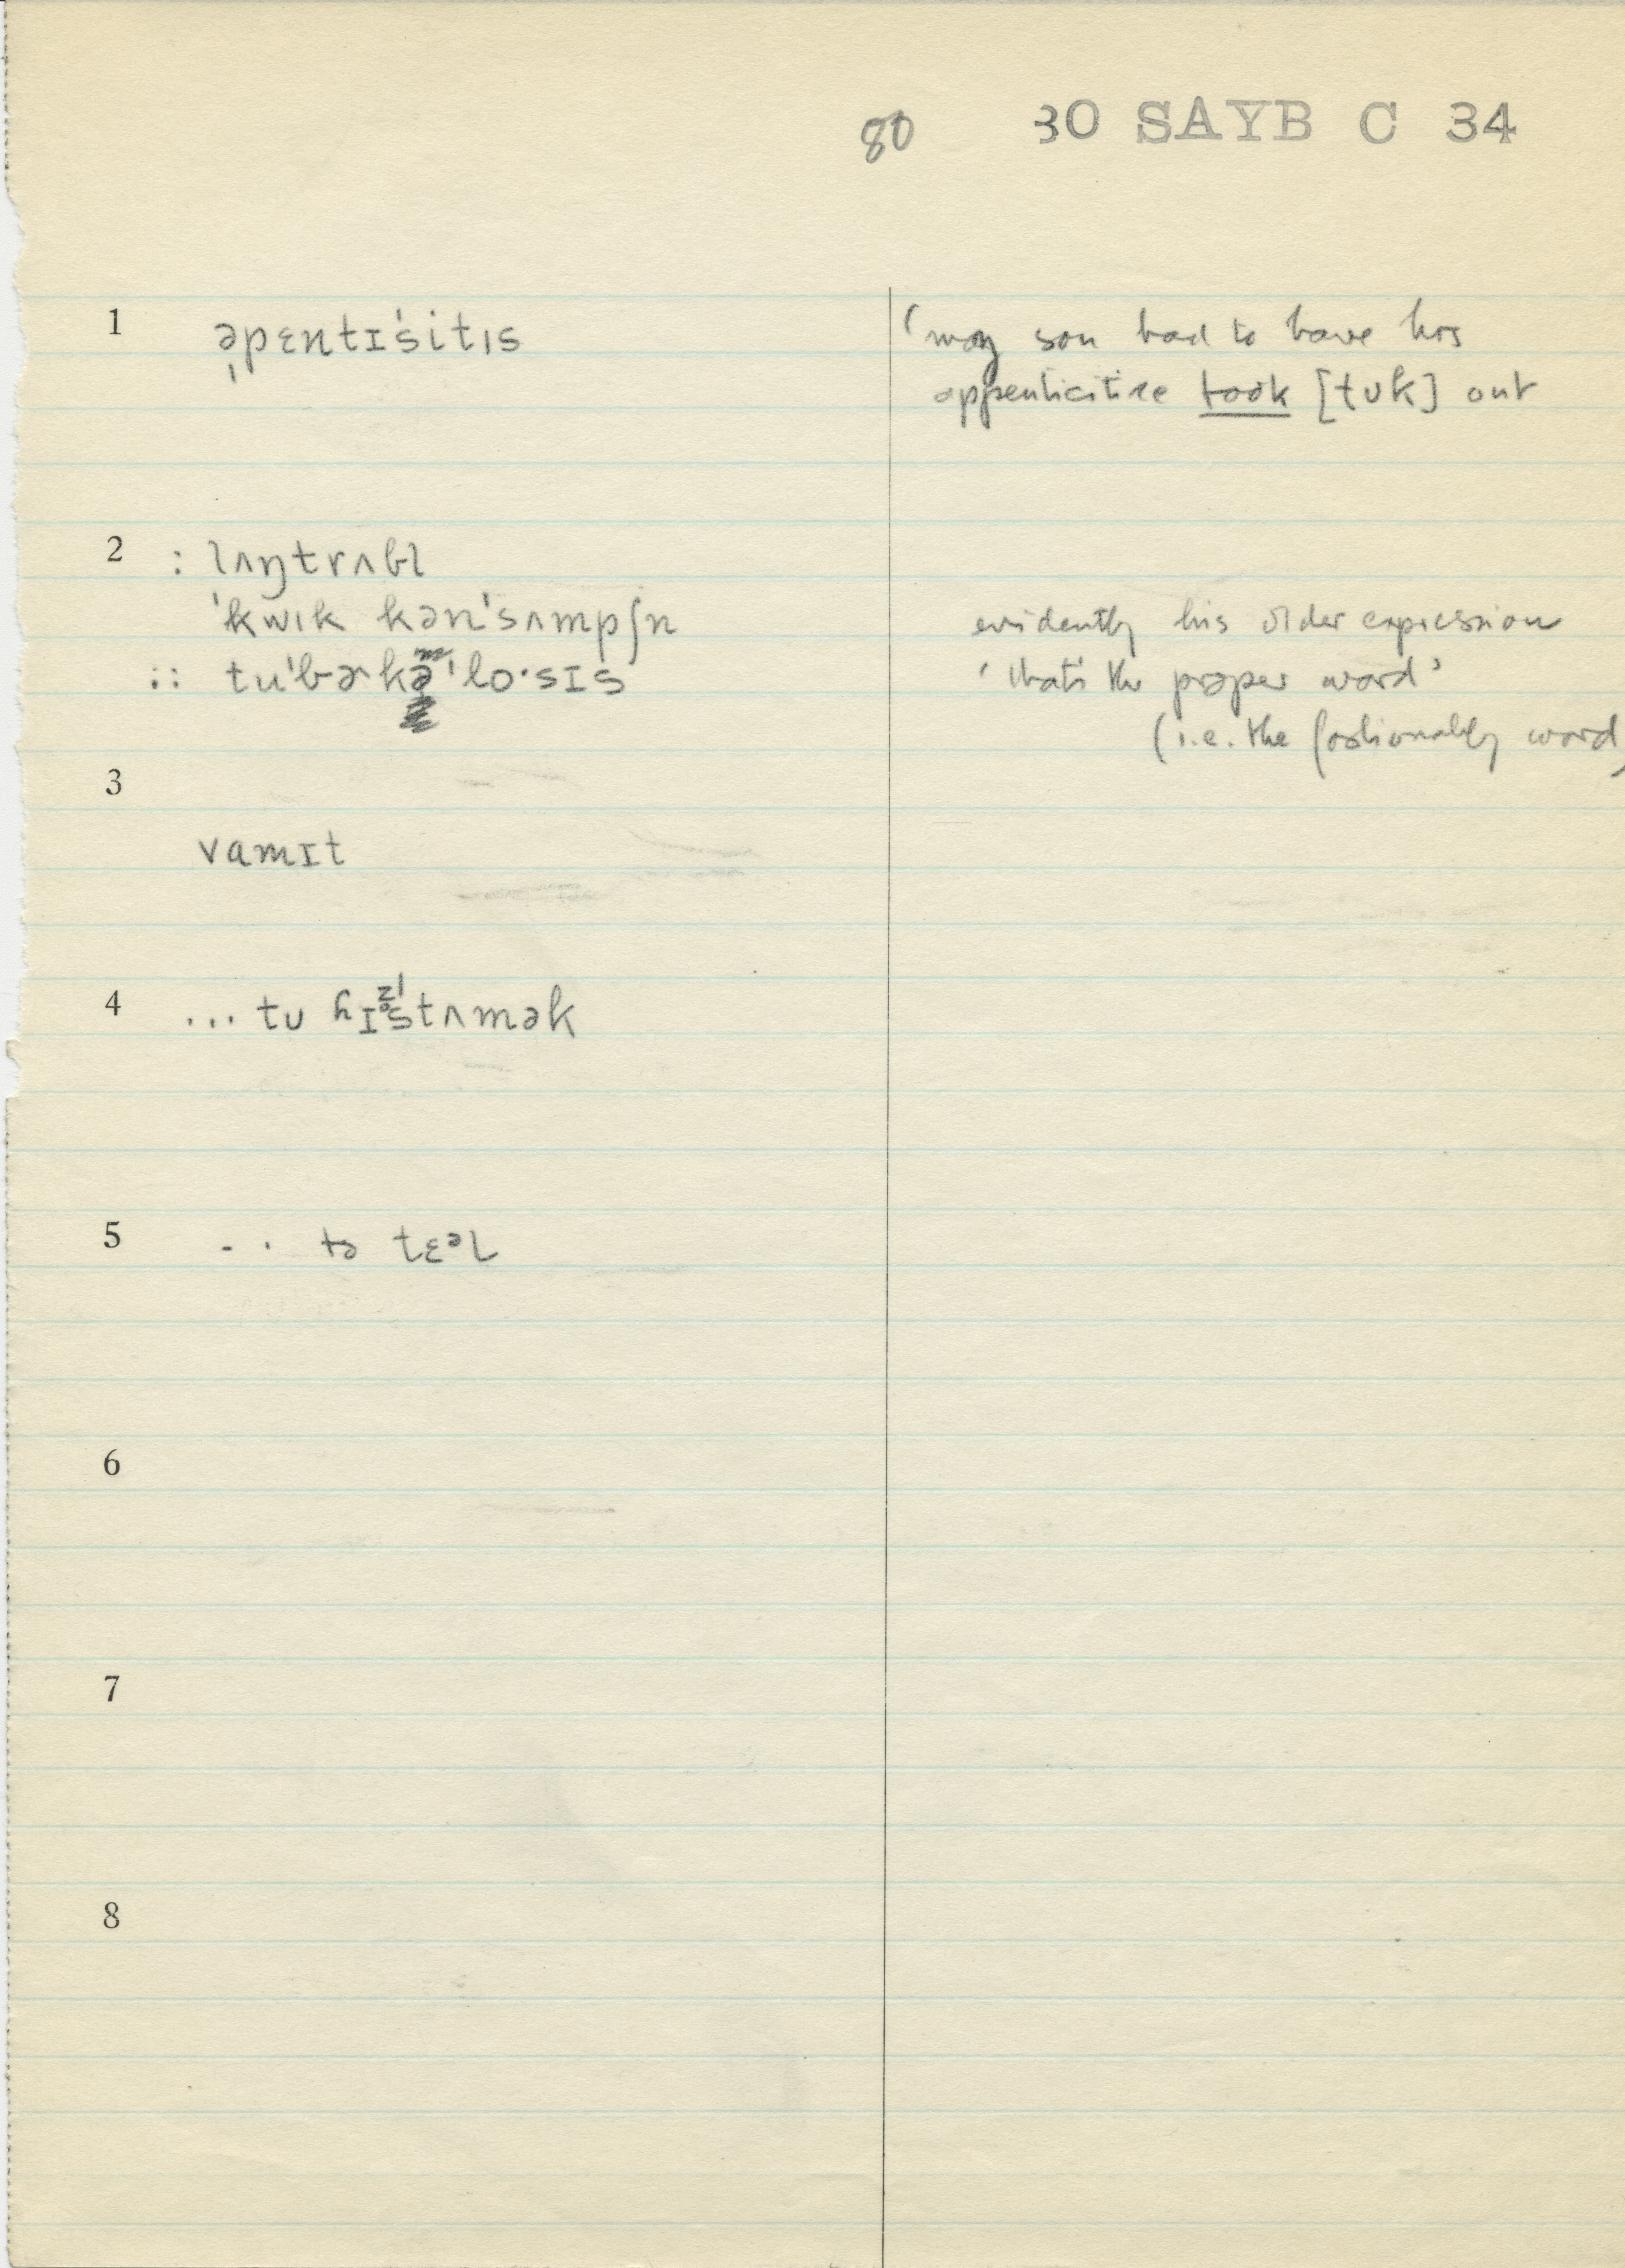 80 30 SAYB C 34
1 ə̩pɛntɪˈsitɪs 'my son had to have his
appenticitise took [tʊk] out
2 : lʌŋtrʌbl
ˈkwɪk kənˈsʌmpʃn evidently his older expression
:: tuˈbɚkəˈlo·sɪs 'that's the proper word'
(i.e. the fashionably word)
3
vɑmɪt
4 ... tʊ ɦɪz stʌmək
5 - · tə tɛᵊl
6
7
8